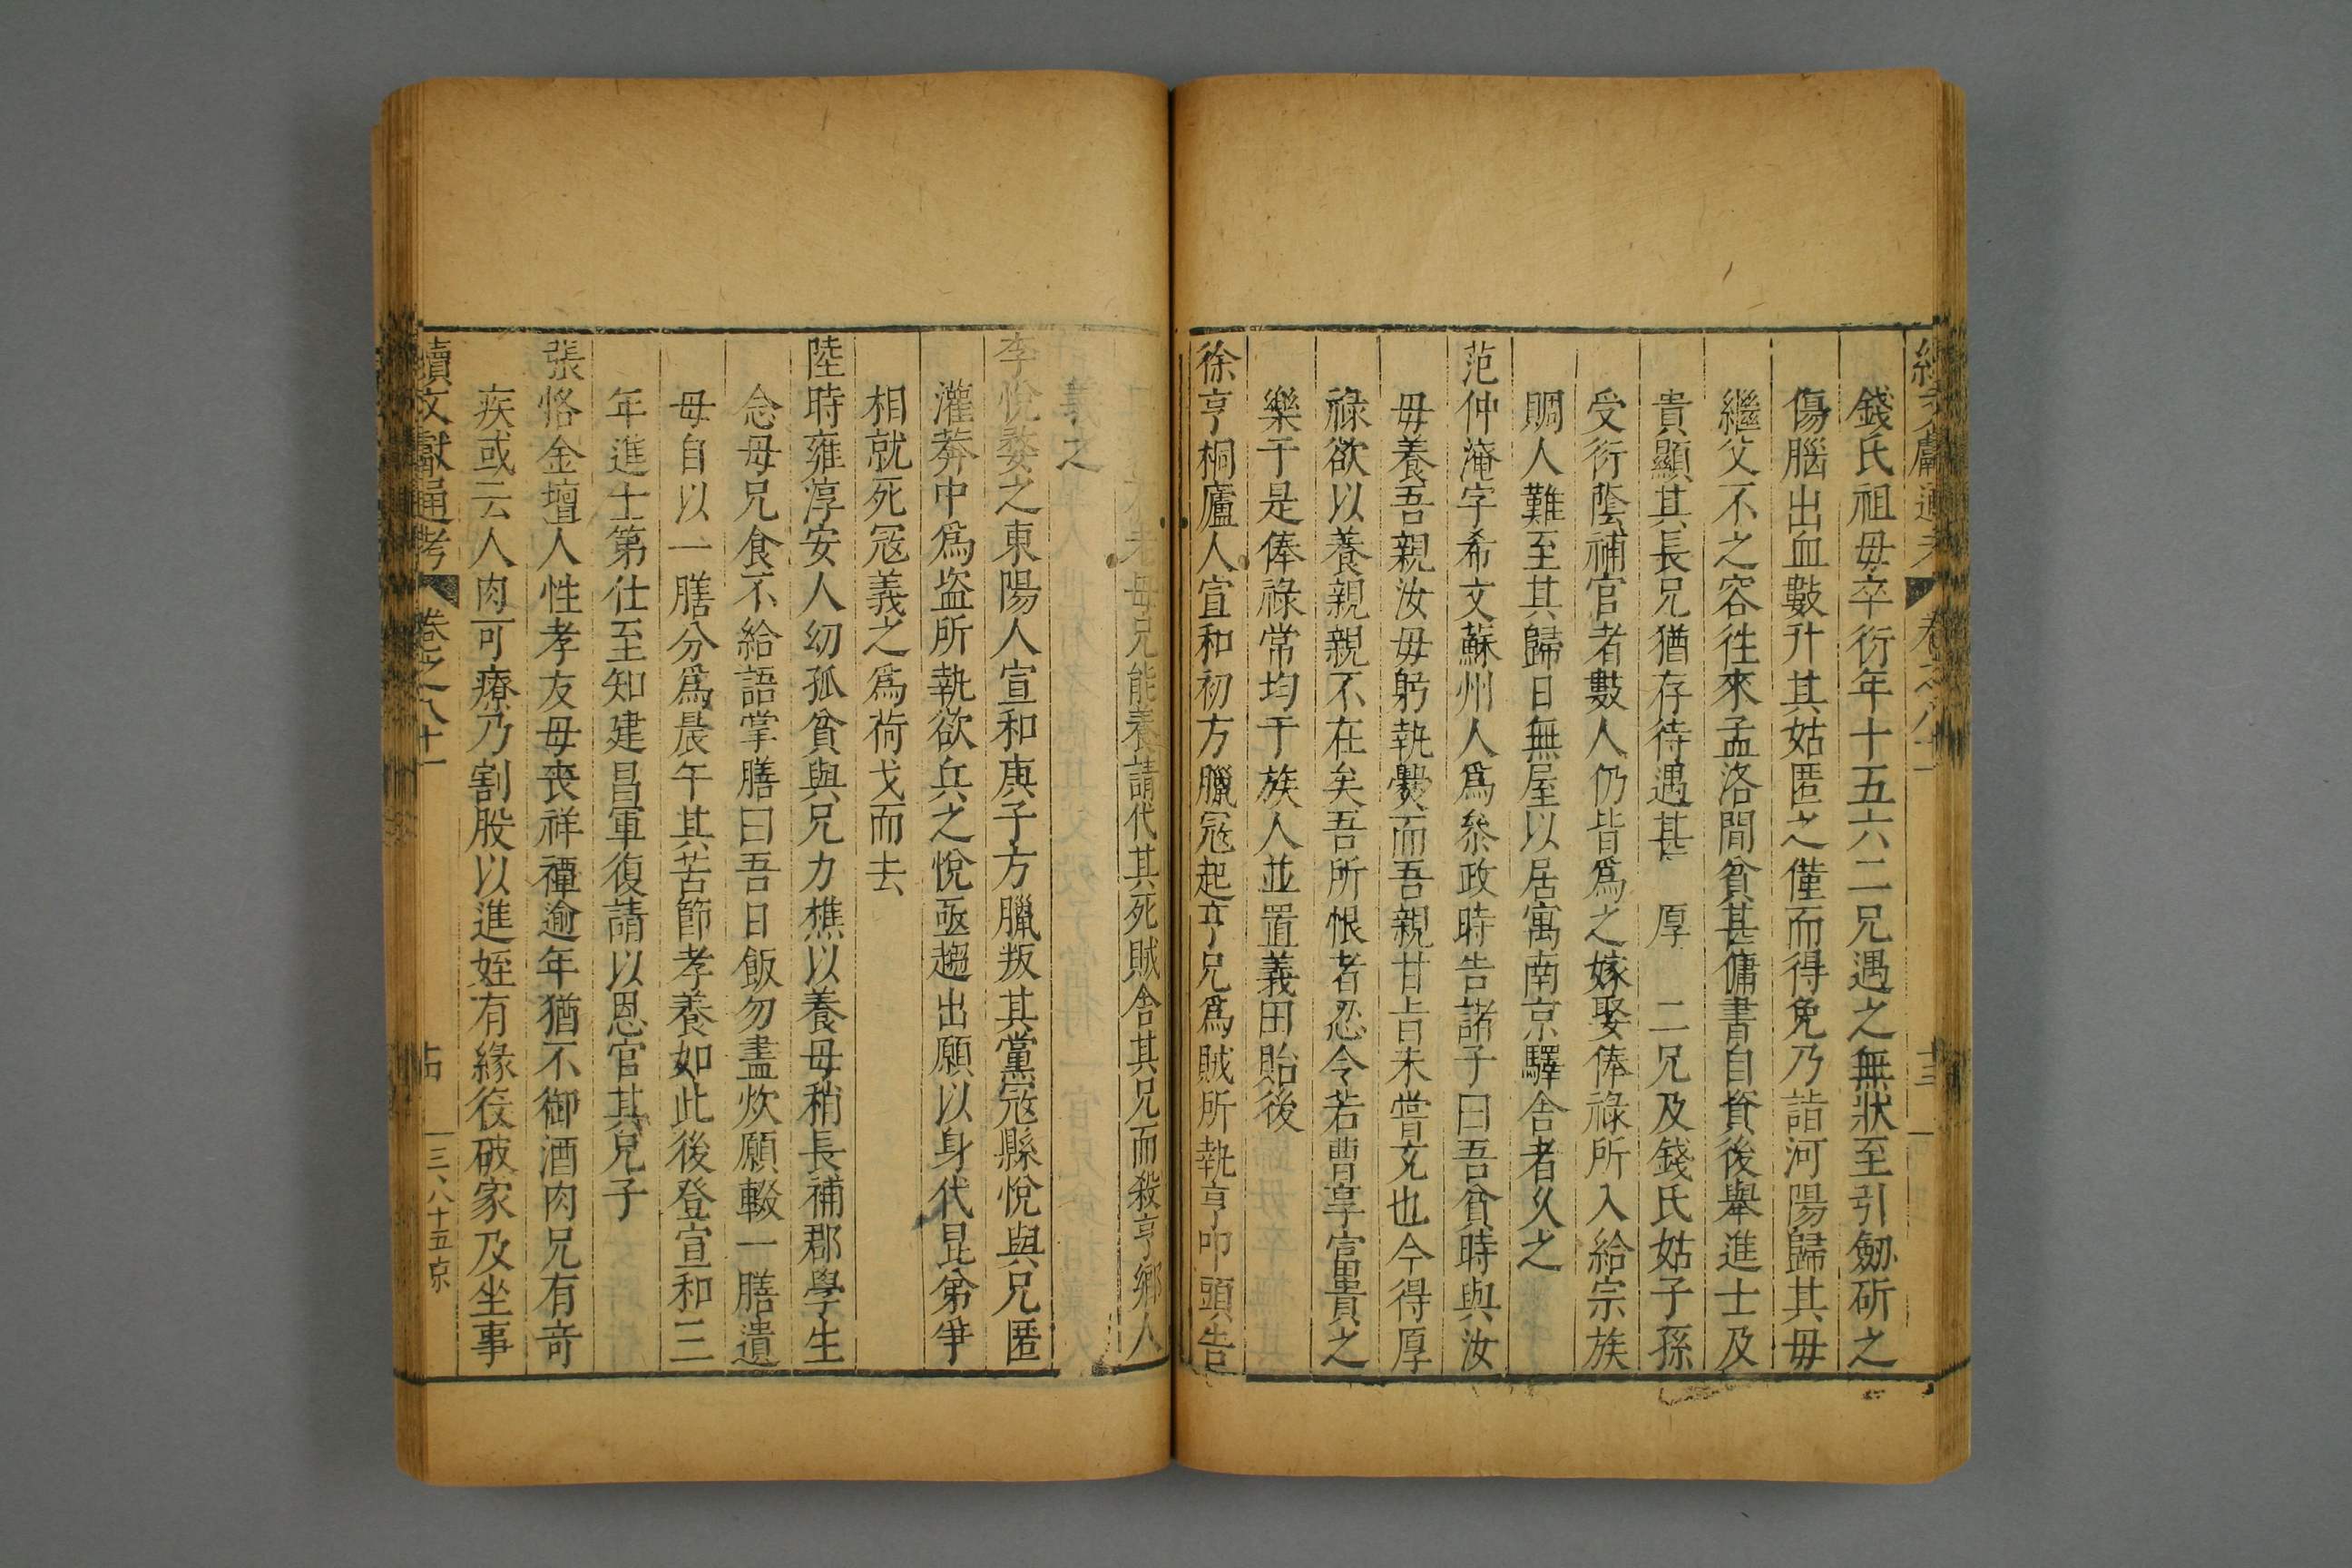 續文獻通考 卷之八十一 十三
錢氏祖母卒衍年十五六二兄遇之無狀至引劒斫之
傷腦出血數升其姑匿之僅而得免乃詣河陽歸其母
繼父不之容往來孟洛間貧甚傭書自資後舉進士及
貴顯其長兄猶存待遇甚厚二兄及錢氏姑子孫
受衍蔭補官者數人仍皆爲之嫁娶俸祿所入給宗族
賙人難至其歸日無屋以居寓南京驛舍者乆之
范仲淹字希文蘇州人爲叅政時告諸子曰吾貧時與汝
母養吾親汝母躬執爨而吾親甘旨未嘗充也今得厚
祿欲以養親親不在矣吾所恨者忍令若曹享富貴之
樂于是俸祿常均于族人並置義田貽後
徐亨桐廬人宣和初方臘冦起亨兄爲賊所執亨叩頭告
老母兄能養請代其死賊舍其兄而殺亨鄉人
葬之
李悅婺之東陽人宣和庚子方臘叛其黨冦縣悅與兄匿
灌莽中爲盗所執欲兵之悅亟趨出願以身代昆弟爭
相就死冦義之爲荷戈而去
陸時雍淳安人幼孤貧與兄力樵以養母稍長補郡學生
念母兄食不給語掌膳曰吾日飯勿盡炊願輟一膳遺
母自以一膳分爲晨午其苦節孝養如此後登宣和三
年進士第仕至知建昌軍復請以恩官其兄子
張恪金壇人性孝友母喪祥禫逾年猶不御酒肉兄有奇
疾或云人肉可療乃割股以進姪有緣役破家及坐事
續文獻通考 卷之八十一 三八十五